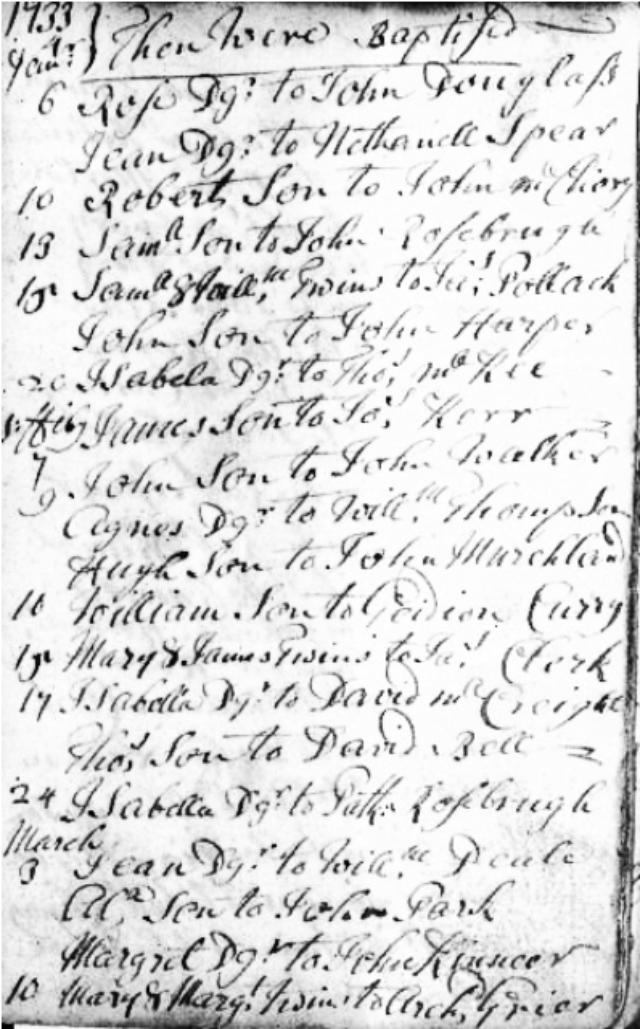 1733
Janr } Then Were Baptisd
6 Rose Dgr to John Douglass
Jean Dgr to Nethanell Spear
10 Robert Son to John
13 Samll Son to John Rosebrugh
15 Samll & Willm Twins to Jas Pollack
John Son to John Harper
20 ISabela Dgr to Thos mcKee
James Son to Jos Kerr
7 John Son to John Walker
9 Agnes Dgr to Willm Thompson
Hugh Son to John Murchland
10 William Son to Gidion Curry
15 Mary & James Twins to Jas Clerk
17 ISabella Dgr to David mc
Thos Son to David Bell
24 ISabella Dgr to Patk Rosbrugh
March
3 Jean Dgr to Willm
Alr Son to John Park
Margret Dgr to John
10 Mary & Margt twins to Archd Grier